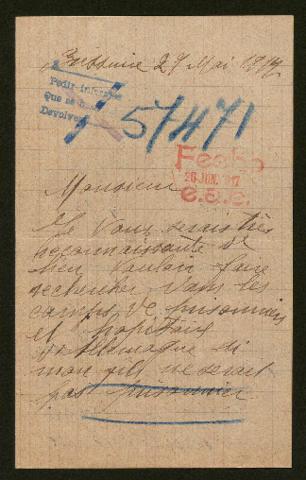 27 Mai 1917
Pedir
Que se
Devolver
57471
Fecho
26 JUN. 917
e.a.e.
Monsieur
Je Vous serais très
reconnaissante de
bien vouloir faire
rechercher dans les
camps de prisonniers
et hopitaux
d'Allemagne si
mon fils ne serait
pas prisonnier